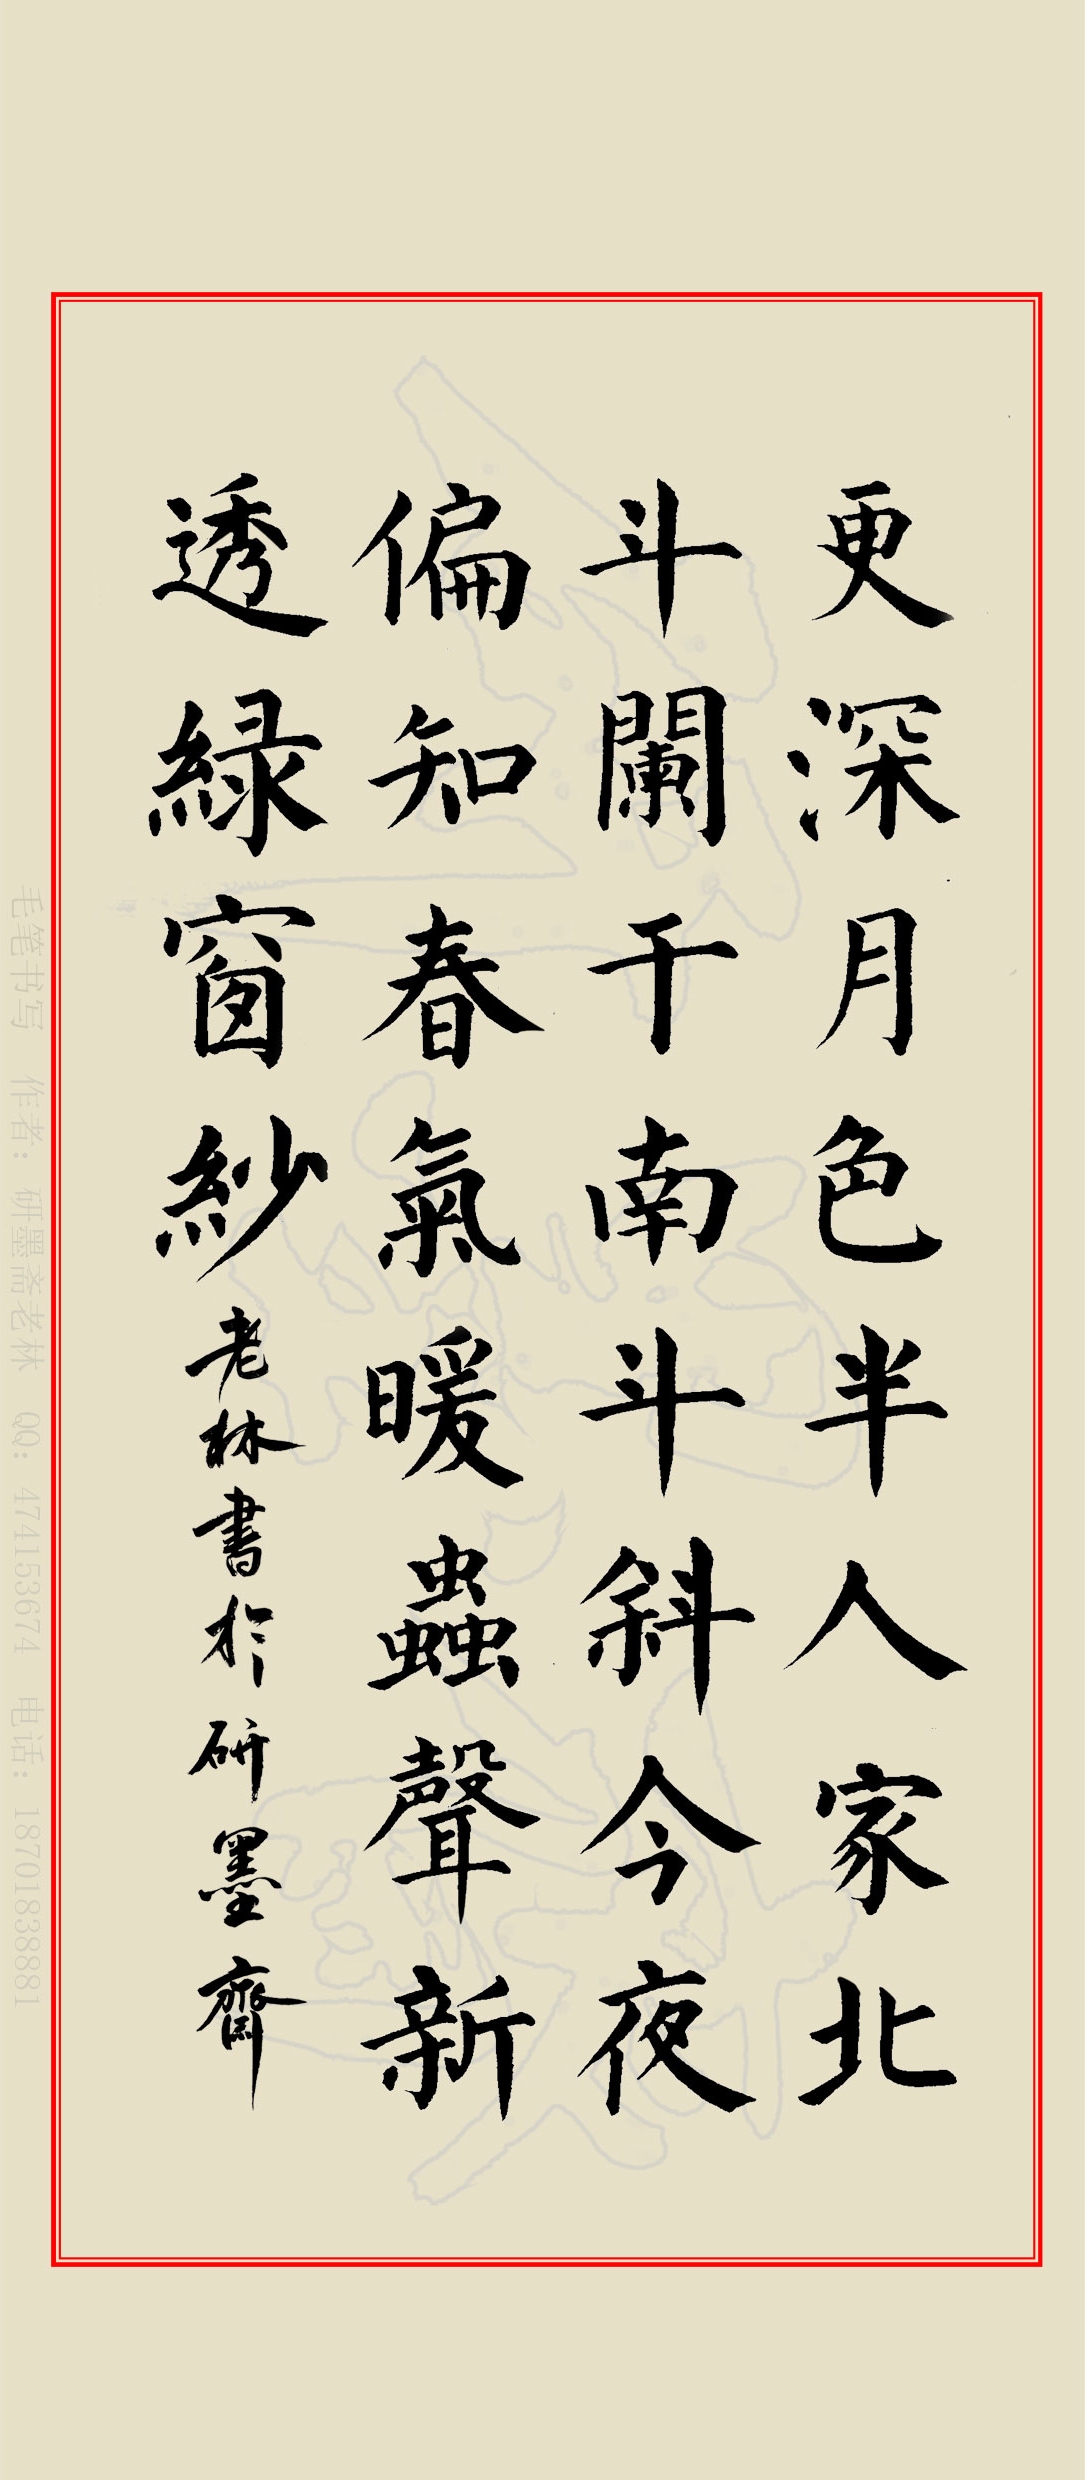 更深月色半人家北
斗闌干南斗斜今夜
偏知春氣暖蟲聲新
透緑窗紗老林書於研墨齋
毛笔书写 作者：研墨斋老林 QQ：474153674 电话：18701838881